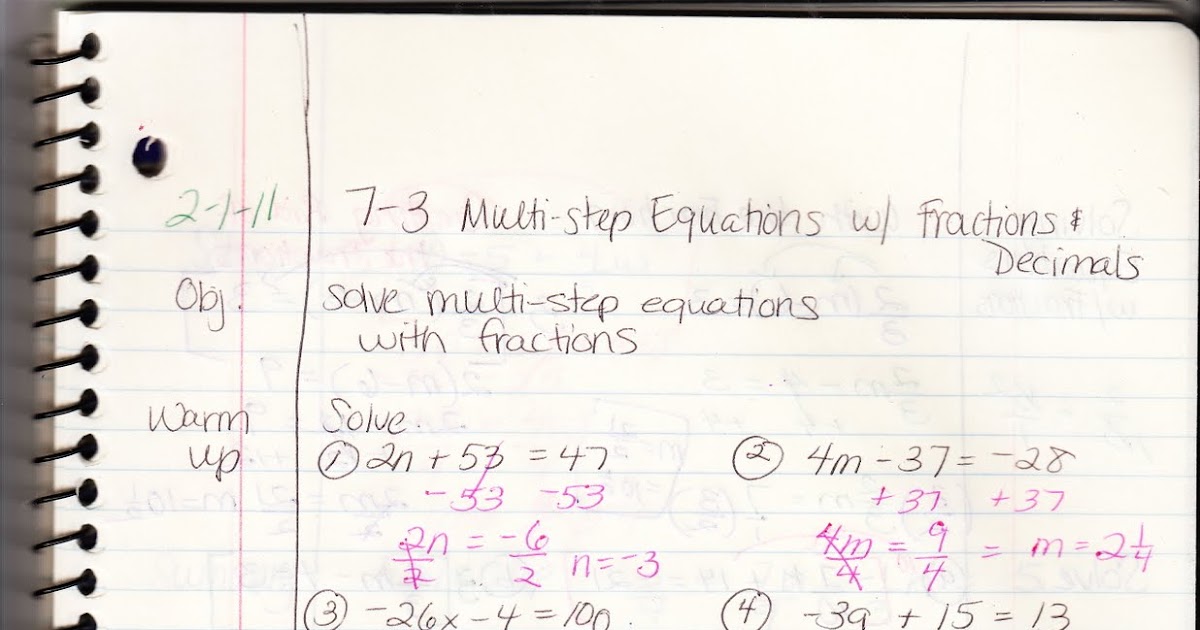 2-1-11 7-3 Multi-step Equations w/ fractions &
Decimals
Obj. solve multi-step equations
with fractions
Warm Solve.
up ① 2n + 53 = 47 ② 4m - 37 = -28
-53 -53 +37 +37
2n/2 = -6/2 n = -3 4m/4 = 9/4 = m = 2 1/4
③ -26x - 4 = 100 ④ -3a + 15 = 13